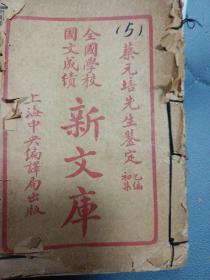 (5)
蔡元培先生鉴定
乙编
初集
全國学校
國文成绩
新文庫
上海中央编譯局出版